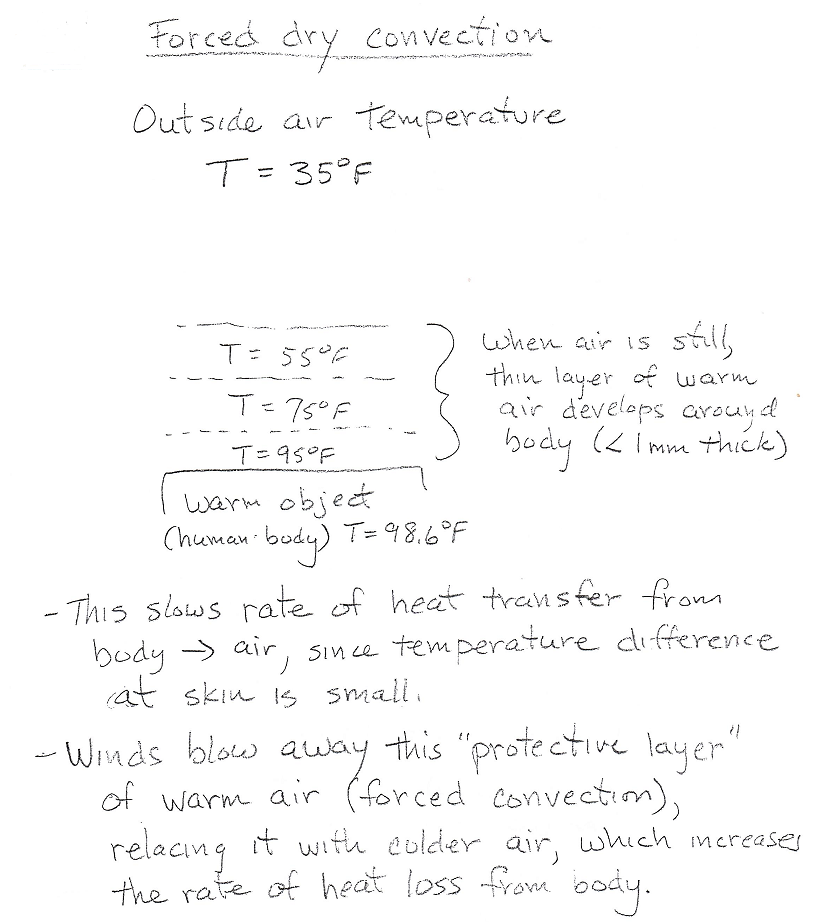 Forced dry convection
Outside air temperature
T = 35°F
T = 55°F
T = 75°F
T = 95°F
When air is still,
thin layer of warm
air develops around
body (< 1mm thick)
Warm object
(human body) T = 98.6°F
- This slows rate of heat transfer from
body → air, since temperature difference
at skin is small.
- Winds blow away this "protective layer"
of warm air (forced convection),
relacing it with colder air, which increases
the rate of heat loss from body.